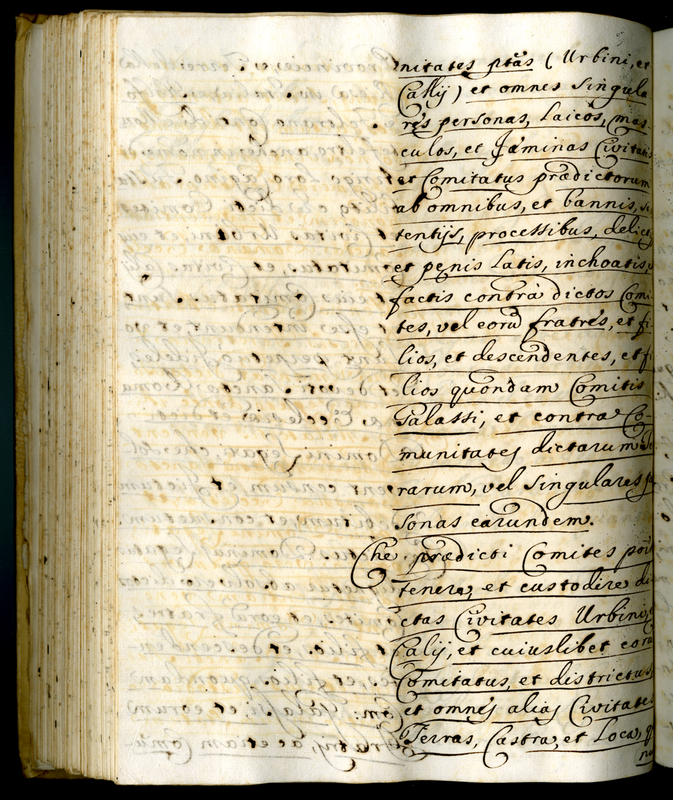 nitates ptãs (Urbini, et
Callij) et omnes singula
res personas, Laicos, mas-
culos, et fæminas Civitatis
et Comitatus prædictorum
ab omnibus, et bannis, 
tentijs, processibus, 
et penis Latis, inchoatis,
factis contrà dictos Comi
tes, vel eorũ fratres, et fi
lios, et descendentes, et fi
lios quondam Comitis
Galassi, et contra Co-
munitates dictarum
rarum, vel singulares
sonas earundem.
Che prædicti Comites
tenere, et custodire di
ctas Civitates Urbini,
Calij, et cuiuslibet eorũ
Comitatus, et districtus
et omnes alias Civitates
Terras, Castra, et Loca,